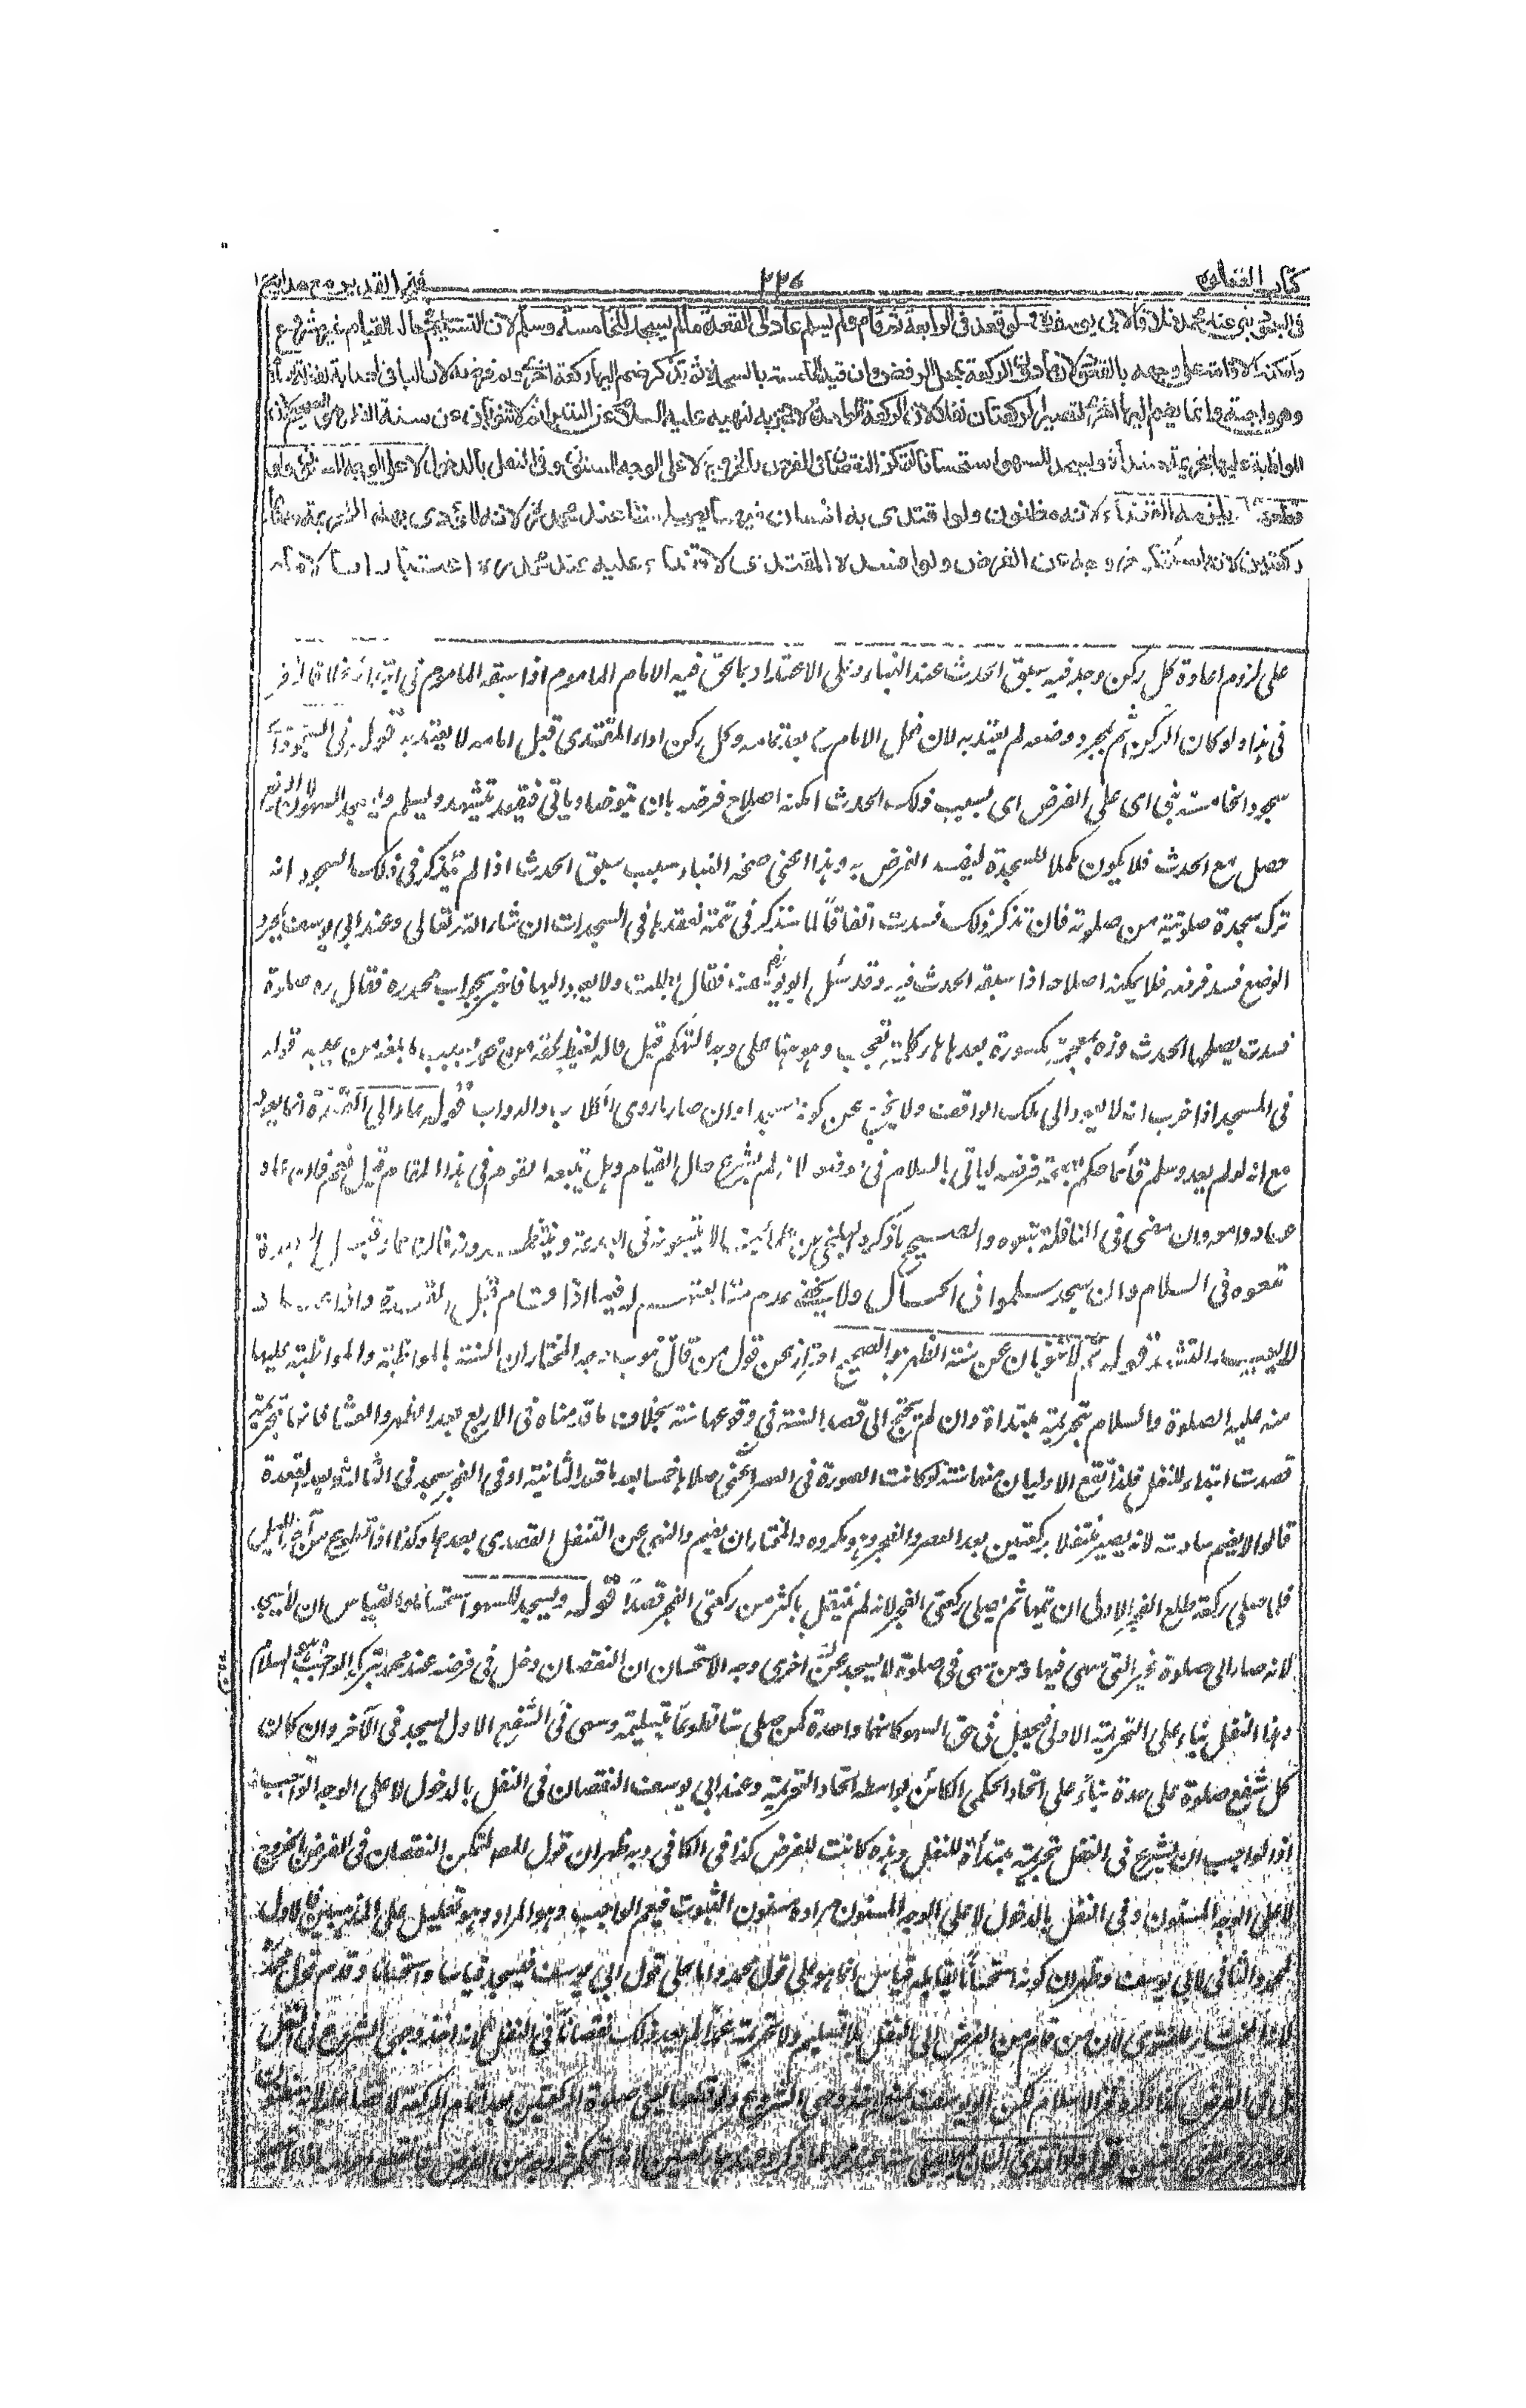 كتاب الصلوة ٢٢٦ فتح القدير مع هداية ج ١
في السجود بنى عند محمد خلافا لابي يوسف ولو قعد في الرابعة ثم قام ولم يسلم عاد الى القعدة مالم يسجد للخامسة وسلم لان التسليم في حال القيام غير مشروع
وامكنه الاقامة على وجهه بالقعود لان ما دون الركعة بمحل الرفض وان قيد الخامسة بالسجدة ثم تذكر ضم اليها ركعة اخرى وتم فرضه لان الباقي اصابة لفظة السلام
وهي واجبة وانما يضم اليها اخرى لتصير الركعتان نفلا لان الركعة الواحدة لا تجزيه لنهيه عليه السلام عن البتيراء ثم لا تنوبان عن سنة الظهر هو الصحيح لان
المواظبة عليها بتحريمة مبتدأة ويسجد للسهو استحسانا لتمكن النقصان في الفرض بالخروج لا على الوجه المسنون وفي النفل بالدخول لا على الوجه المسنون ولو
قطعها لم يلزمه القضاء لانه مظنون ولو اقتدى به انسان فيهما يصلي ستا عند محمد لانه المؤدى بهذه التحريمة وعندهما
ركعتين لانه استحكم خروجه عن الفرض ولو افسده المقتدي لا قضاء عليه عند محمد رح اعتبارا بالامام
على لزوم اعادة كل ركن وجد فيه سبق الحدث عند البناء وعلى الاعتداد بما لحق فيه الامام الماموم اذا سبقه الماموم في ابتدائه خلافا لزفر
في هذا ولو كان الركن يتم بمجرد وضعه لم يعتد به لان فعل الامام بعد تمامه وكل ركن اداه المقتدى قبل امامه لا يعتد به قوله في السجود اى
سجود الخامسة بنى اى على الفرض اى بسبب ذلك الحدث امكنه اصلاح فرضه بان يتوضأ وياتي فيقعد ويتشهد ويسلم ويسجد للسهو لان الرفع
حصل مع الحدث فلا يكون مكملا للسجدة ليفسد الفرض به وهذا اعنى صحة البناء بسبب سبق الحدث اذا لم يتذكر في ذلك السجود انه
ترك سجدة صلوتية من صلوته فان تذكر ذلك فسدت اتفاقا لما سنذكر في تتمة نعقدها في السجدات ان شاء الله تعالى وعند ابي يوسف بمجرد
الوضع فسد فرضه فلا يمكنه اصلاحه اذا سبقه الحدث فيه وقد سئل ابو يوسف عنه فقال بطلت ولا يعود اليها فاخبر بجواب محمد رح فقال زه صلوة
فسدت يصلحها الحدث وزه بمعجمة مكسورة بعدها هاء كلمة تعجب وهو هنا على وجه التهكم قيل قاله لغيظ لحقه من محمد بسبب ما بلغه من عيبه قوله
في المسجد اذا خرب انه لا يعود الى ملك الواقف ولا يخرج عن كونه مسجدا وان صار ماوى الكلاب والدواب قوله عاد الى القعدة انما يعود
مع انه لو لم يعد وسلم قائما حكم بصحة فرضه لياتي بالسلام في موضعه لانه لم يشرع حال القيام وهل يتبعه القوم في هذا القيام قيل نعم فان عاد
عادوا معه وان مضى في النافلة تبعوه والصحيح ما ذكره البلخي عن علمائنا لا يتبعونه في البدعة وينتظرونه فان عاد قبل السجدة
تبعوه في السلام وان سجد سلموا في الحال ولا يخفى عدم متابعتهم له فيما اذا قام قبل القعدة واذا عاد
لا يعيد التشهد قوله ثم لا تنوبان عن سنة الظهر هو الصحيح احتراز عن قول من قال تنوبان وجه المختار ان السنة بالمواظبة والمواظبة عليها
منه عليه الصلوة والسلام بتحريمة مبتدأة وان لم يحتج الى قصد السنة في وقوعها سنة بخلاف ما قدمناه في الاربع بعد الظهر والعشاء لانها بتحريمة
قصدت ابتداء للنفل فلذا تقع الاوليان منها سنة لو كانت الصورة في العصر اعنى صلاها خمسا بعد ما قعد الثانية او في الفجر سجد في الثالثة بعد القعدة
قالوا لا يضم سادسة لانه يصير متنفلا بركعتين بعد العصر والفجر وهو مكروه والمختار ان يضم والنهى عن التنفل القصدى بعدهما وكذا اذا تطوع من آخر الليل
فلما صلى ركعة طلع الفجر الاولى ان يتمها ثم يصلى ركعتى الفجر لانه لم يتنفل باكثر من ركعتى الفجر قصدا قوله ويسجد للسهو استحسانا والقياس ان لا يسجد
لانه صار الى صلوة غير التي سهى فيها ومن سهى في صلوة لا يسجد في اخرى وجه الاستحسان ان النقصان دخل في فرضه عند محمد بترك الواجب وهو السلام
وهذا النفل بناء على التحريمة الاولى فيجعل في حق السهو كانها واحدة كمن صلى ستا تطوعا بتسليمة وسهى في الشفع الاول يسجد في الآخر وان كان
كل شفع صلوة على حدة بناء على اتحاد الحكمي الكائن بواسطة اتحاد التحريمة وعند ابي يوسف النقصان في النفل بالدخول لا على الوجه الواجب
اذ الواجب ان يشرع في النفل بتحريمة مبتدأة للنفل وهذه كانت للفرض كذا في الكافي وبه ظهر ان قول المصـ لتمكن النقصان في الفرض بالخروج
لا على الوجه المسنون وفي النفل بالدخول لا على الوجه المسنون مراده مسنون الثبوت فيعم الواجب وهو المراد وهو تعليل على المذهبين فالاول
لمحمد والثاني لابي يوسف وظهر ان كونه استحسانا يقابله قياس انما هو على قول محمد واما على قول ابي يوسف فيسجد قياسا واستحسانا وقدم قول محمد
لانه المختار للفتوى لان من قام من الفرض الى النفل بلا تسليم ولا تحريمة عمدا لم يعد ذلك نقصانا في النفل لانه احد وجهى الشروع في النفل
بل في الفرض كذا ذكره فخر الاسلام